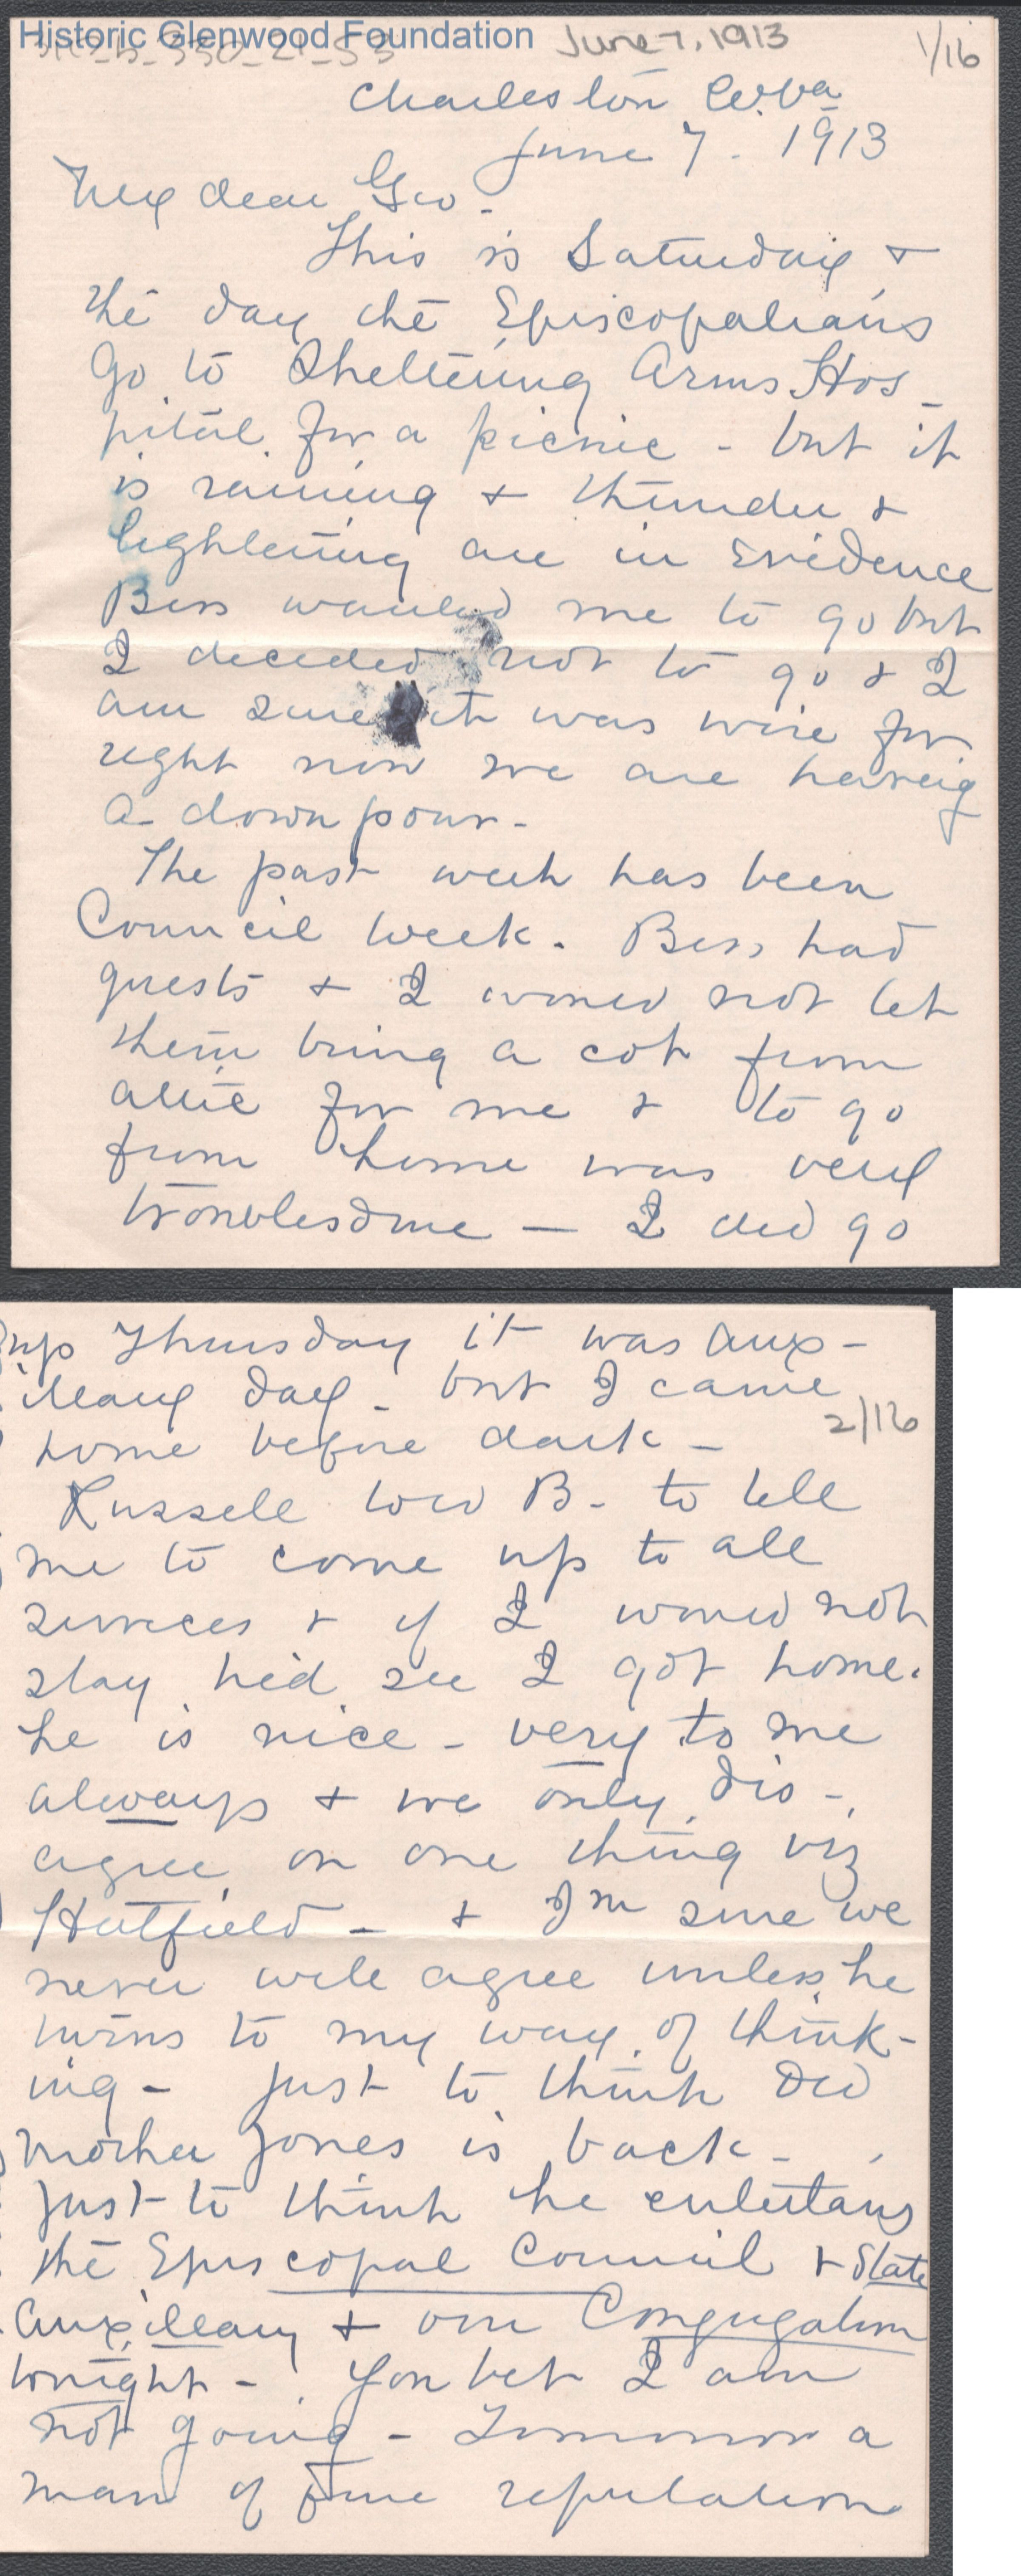 Historic Glenwood Foundation
June 7, 1913
1/16
Charleston W.Va
June 7. 1913
My dear Geo-
This is Saturday &
the day the Episcopalians
go to Sheltering Arms Hos-
pital for a picnic - but it
is raining & thunder &
lightening are in evidence
Bess wanted me to go but
I decided not to go & I
am sure it was wise for
right now we are having
a down pour-
The past week has been
Council week. Bess had
guests & I would not let
them bring a cot from
attic for me & to go
from home was very
troublesome — I did go
up Thursday it was aux-
illary day - but I came
2/16
home before dark -
Russell told B- to tell
me to come up to all
services & if I would not
stay he'd see I got home.
he is nice - very to me
always & we only dis-
agree on one thing viz
Hatfield - & I'm sure we
never will agree unless he
turns to my way of think-
ing - Just to think Old
Mother Jones is back -
Just to think he entertans
the Episcopal Council & State
Auxillary & our Congregation
tonight - You bet I am
not going - Tomorrow a
man of fine reputation